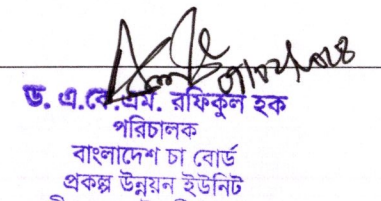 ড. এ.কে.এম. রফিকুল হক
পরিচালক
বাংলাদেশ চা বোর্ড
প্রকল্প উন্নয়ন ইউনিট